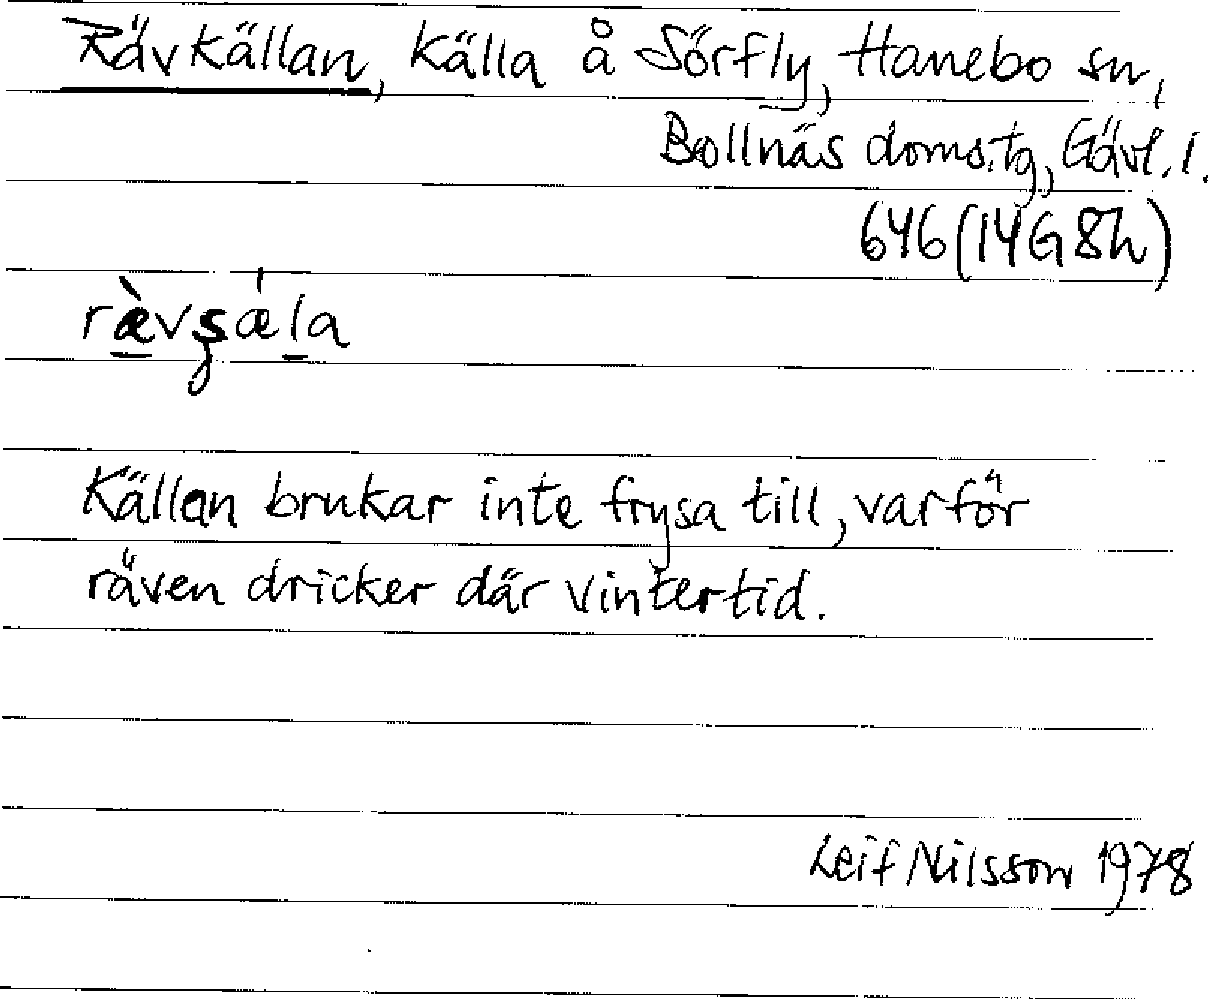 Rävkällan, Källa å Sörfly, Hanebo sn,
Bollnäs doms.tg, Gävl. l.
646 (14G 8h)
Källan brukar inte frysa till, varför
räven dricker där vintertid.
Leif Nilsson 1978